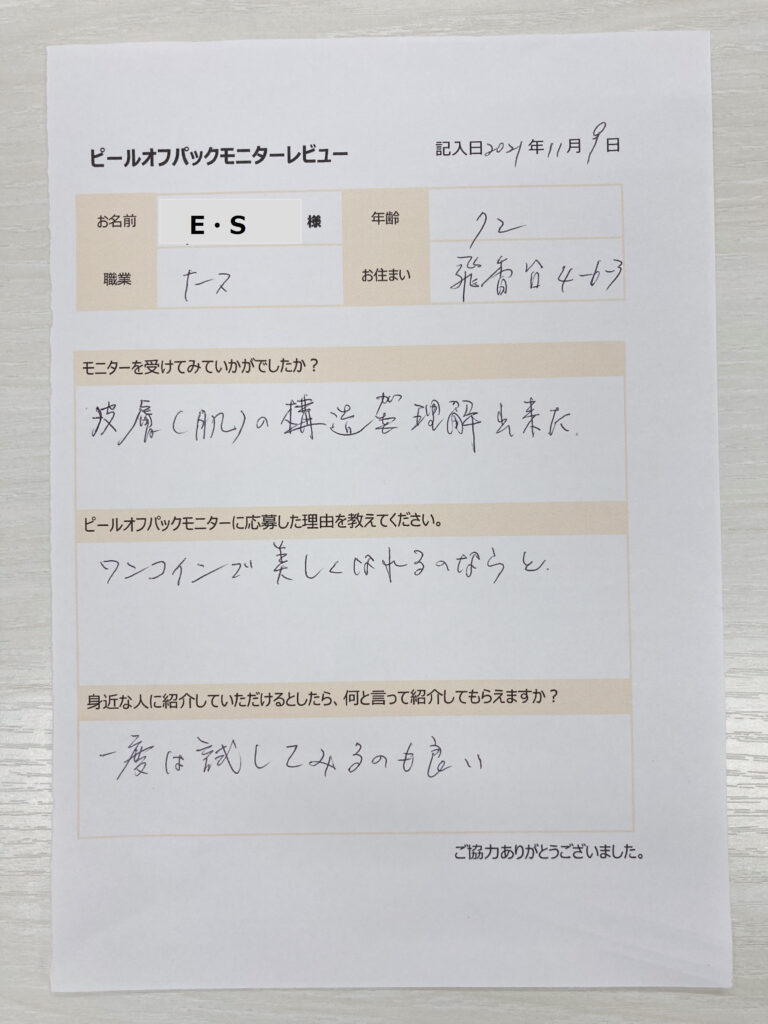 ピールオフパックモニターレビュー
記入日2021年11月9日
お名前 E・S 様 年齢 72
職業 ナース お住まい 飛香台4-6-3
モニターを受けてみていかがでしたか？
皮膚(肌)の構造が理解出来た.
ピールオフパックモニターに応募した理由を教えてください。
ワンコインで美しくなれるのならと.
身近な人に紹介していただけるとしたら、何と言って紹介してもらえますか？
一度は試してみるのも良い
ご協力ありがとうございました。